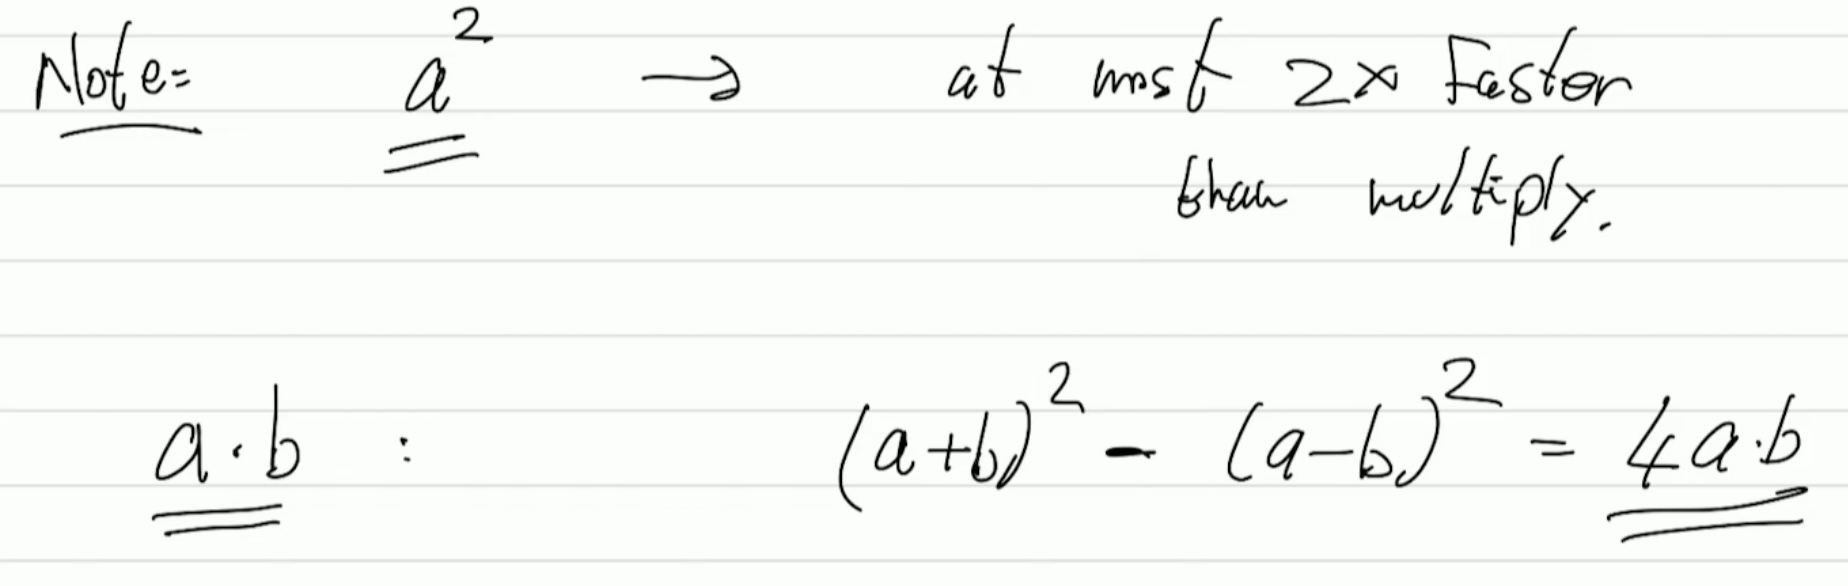 Note: a² → at most 2x Faster
than multiply.
a·b : (a+b)² - (a-b)² = 4a·b